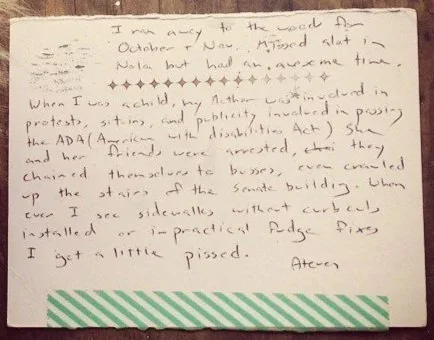 I ran away to the woods for
October + Nov. Missed alot in
Nola but had an awesome time.
When I was a child, my Mother was involved in
protests, sitins, and publicity involved in passing
the ADA (American with disabilities Act) She
and her friends were arrested, they
chained themselves to busses, even crawled
up the stairs of the Senate building. When
ever I see sidewalks without curbcuts
installed or impractical fudge fixes
I get a little pissed.